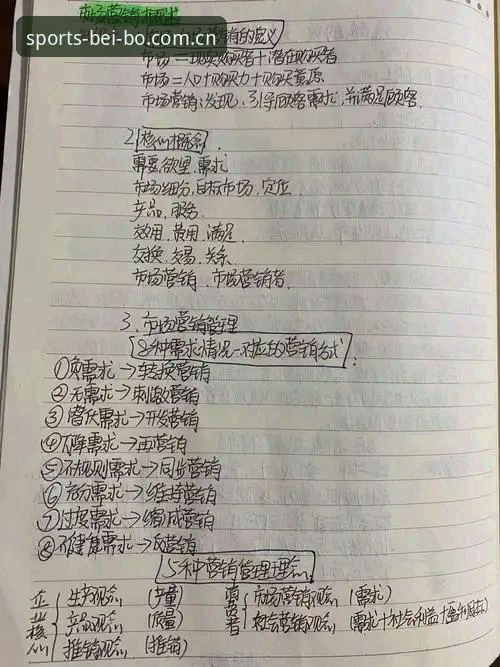 市场营销概述
sports-bei-bo.com.cn
营销的定义
市场=现实购买者+潜在购买者
市场=人口+购买力+购买
市场营销:发现、引导顾客需求,并满足顾客.
2.核心概念
需要.欲望.需求
市场细分,目标市场、定位
产品、服务.
效用.费用.满足.
交换.交易.关系.
市场营销、市场营销者.
3.市场营销管理
8种需求情况-对应的营销方式:
①负需求→转换营销
②无需求→刺激营销
③潜伏需求→开发营销
④下降需求→再营销
⑤不规则需求→同步营销
⑥充分需求→维持营销
⑦过度需求→缩减营销
⑧不健康需求→反营销
5种营销管理理念
企业核心 生产观念 (产量) 消费者 市场营销观念 (需求)
产品观念 (质量) 社会营销观念 (需求+社会利益+盈利目标)
推销观念 (推销)